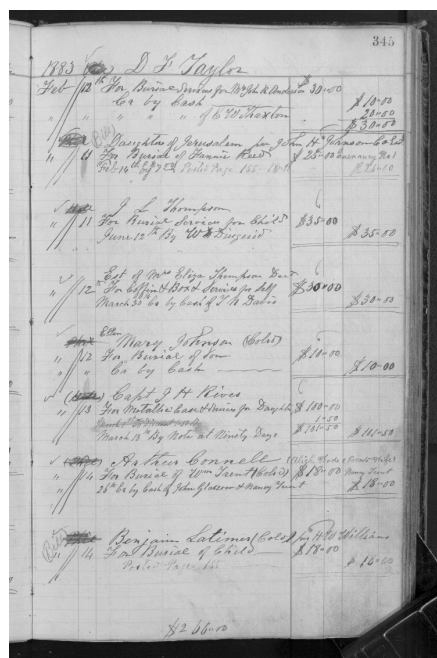 345
1883 D F Taylor
Feb 12th For Burial Services for Mrs John R Anderson $30-00
Cr by Cash $10-00
" " " of C W Thaxton 20-00
$30-00
Daughters of Jerusalem per John H Johnson Cold
11 For Burial of Fannie Reed $25-00
Feb 14th Posted Page 155
J L Thompson
" 11 For Burial Services for Child $35-00
June 12th By W $35-00
Est of Mrs Eliza Thompson Dead
" 12th For Coffin & Box & Services for Self $30-00
March 30th Cr by Cash of T R Davis $30-00
Ellen
Mary Johnson (Cold)
" 12 For Burial of Son $10-00
" Cr by Cash $10-00
Capt J H Rives
" 13 For Metallic Case & Services for Daughter $100-00
1-50
$101-50
March 13th By Note at Ninety Days $101-50
Arthur Connelle
" 14 For Burial of Wm Trent (Cold) $18-00 Nancy Trent
26th Cr by Cash of John Glascow & Nancy Trent $18-00
Benjamin Latimer (Cold) per H W Williams
" 14 For Burial of Child $18-00
Posted Page 155
$266-00